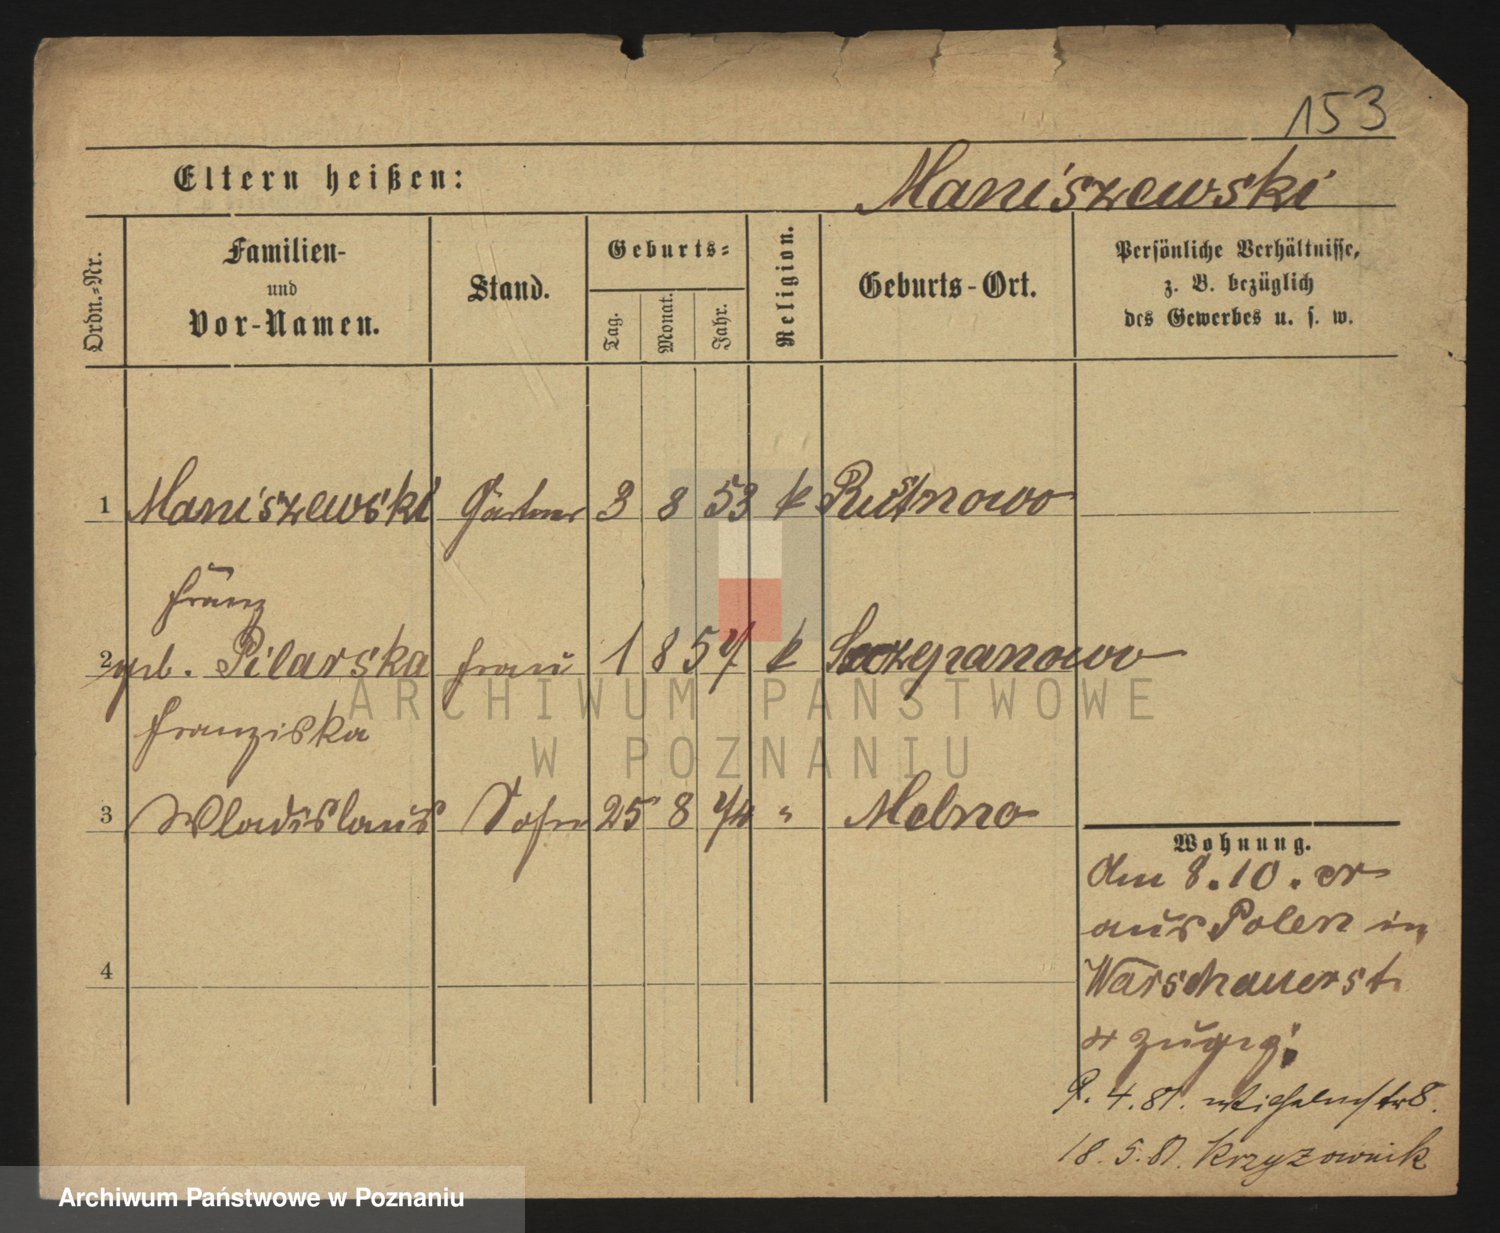 153
Eltern heißen:
Maniszewski
Ordn.-Nr.
Familien-
und
Vor-Namen.
Stand.
Geburts-
Tag.
Monat.
Jahr.
Religion.
Geburts-Ort.
Persönliche Verhältnisse,
z. B. bezüglich
des Gewerbes u. s. w.
1 Maniszewski Gärtner 3 8 53 k
Franz
2 geb. Pilarska Frau 1 8 57 k Szczepanowo
Franziska
3 Wladislaus Sohn 25 8 " Melno
4
Wohnung.
Am 8.10. cr
aus Polen in
Warschauerst.
zugez.
4.81. Wilhelmstr 8.
18.5.81. Krzyzownik
ARCHIWUM PAŃSTWOWE
W POZNANIU
Archiwum Państwowe w Poznaniu